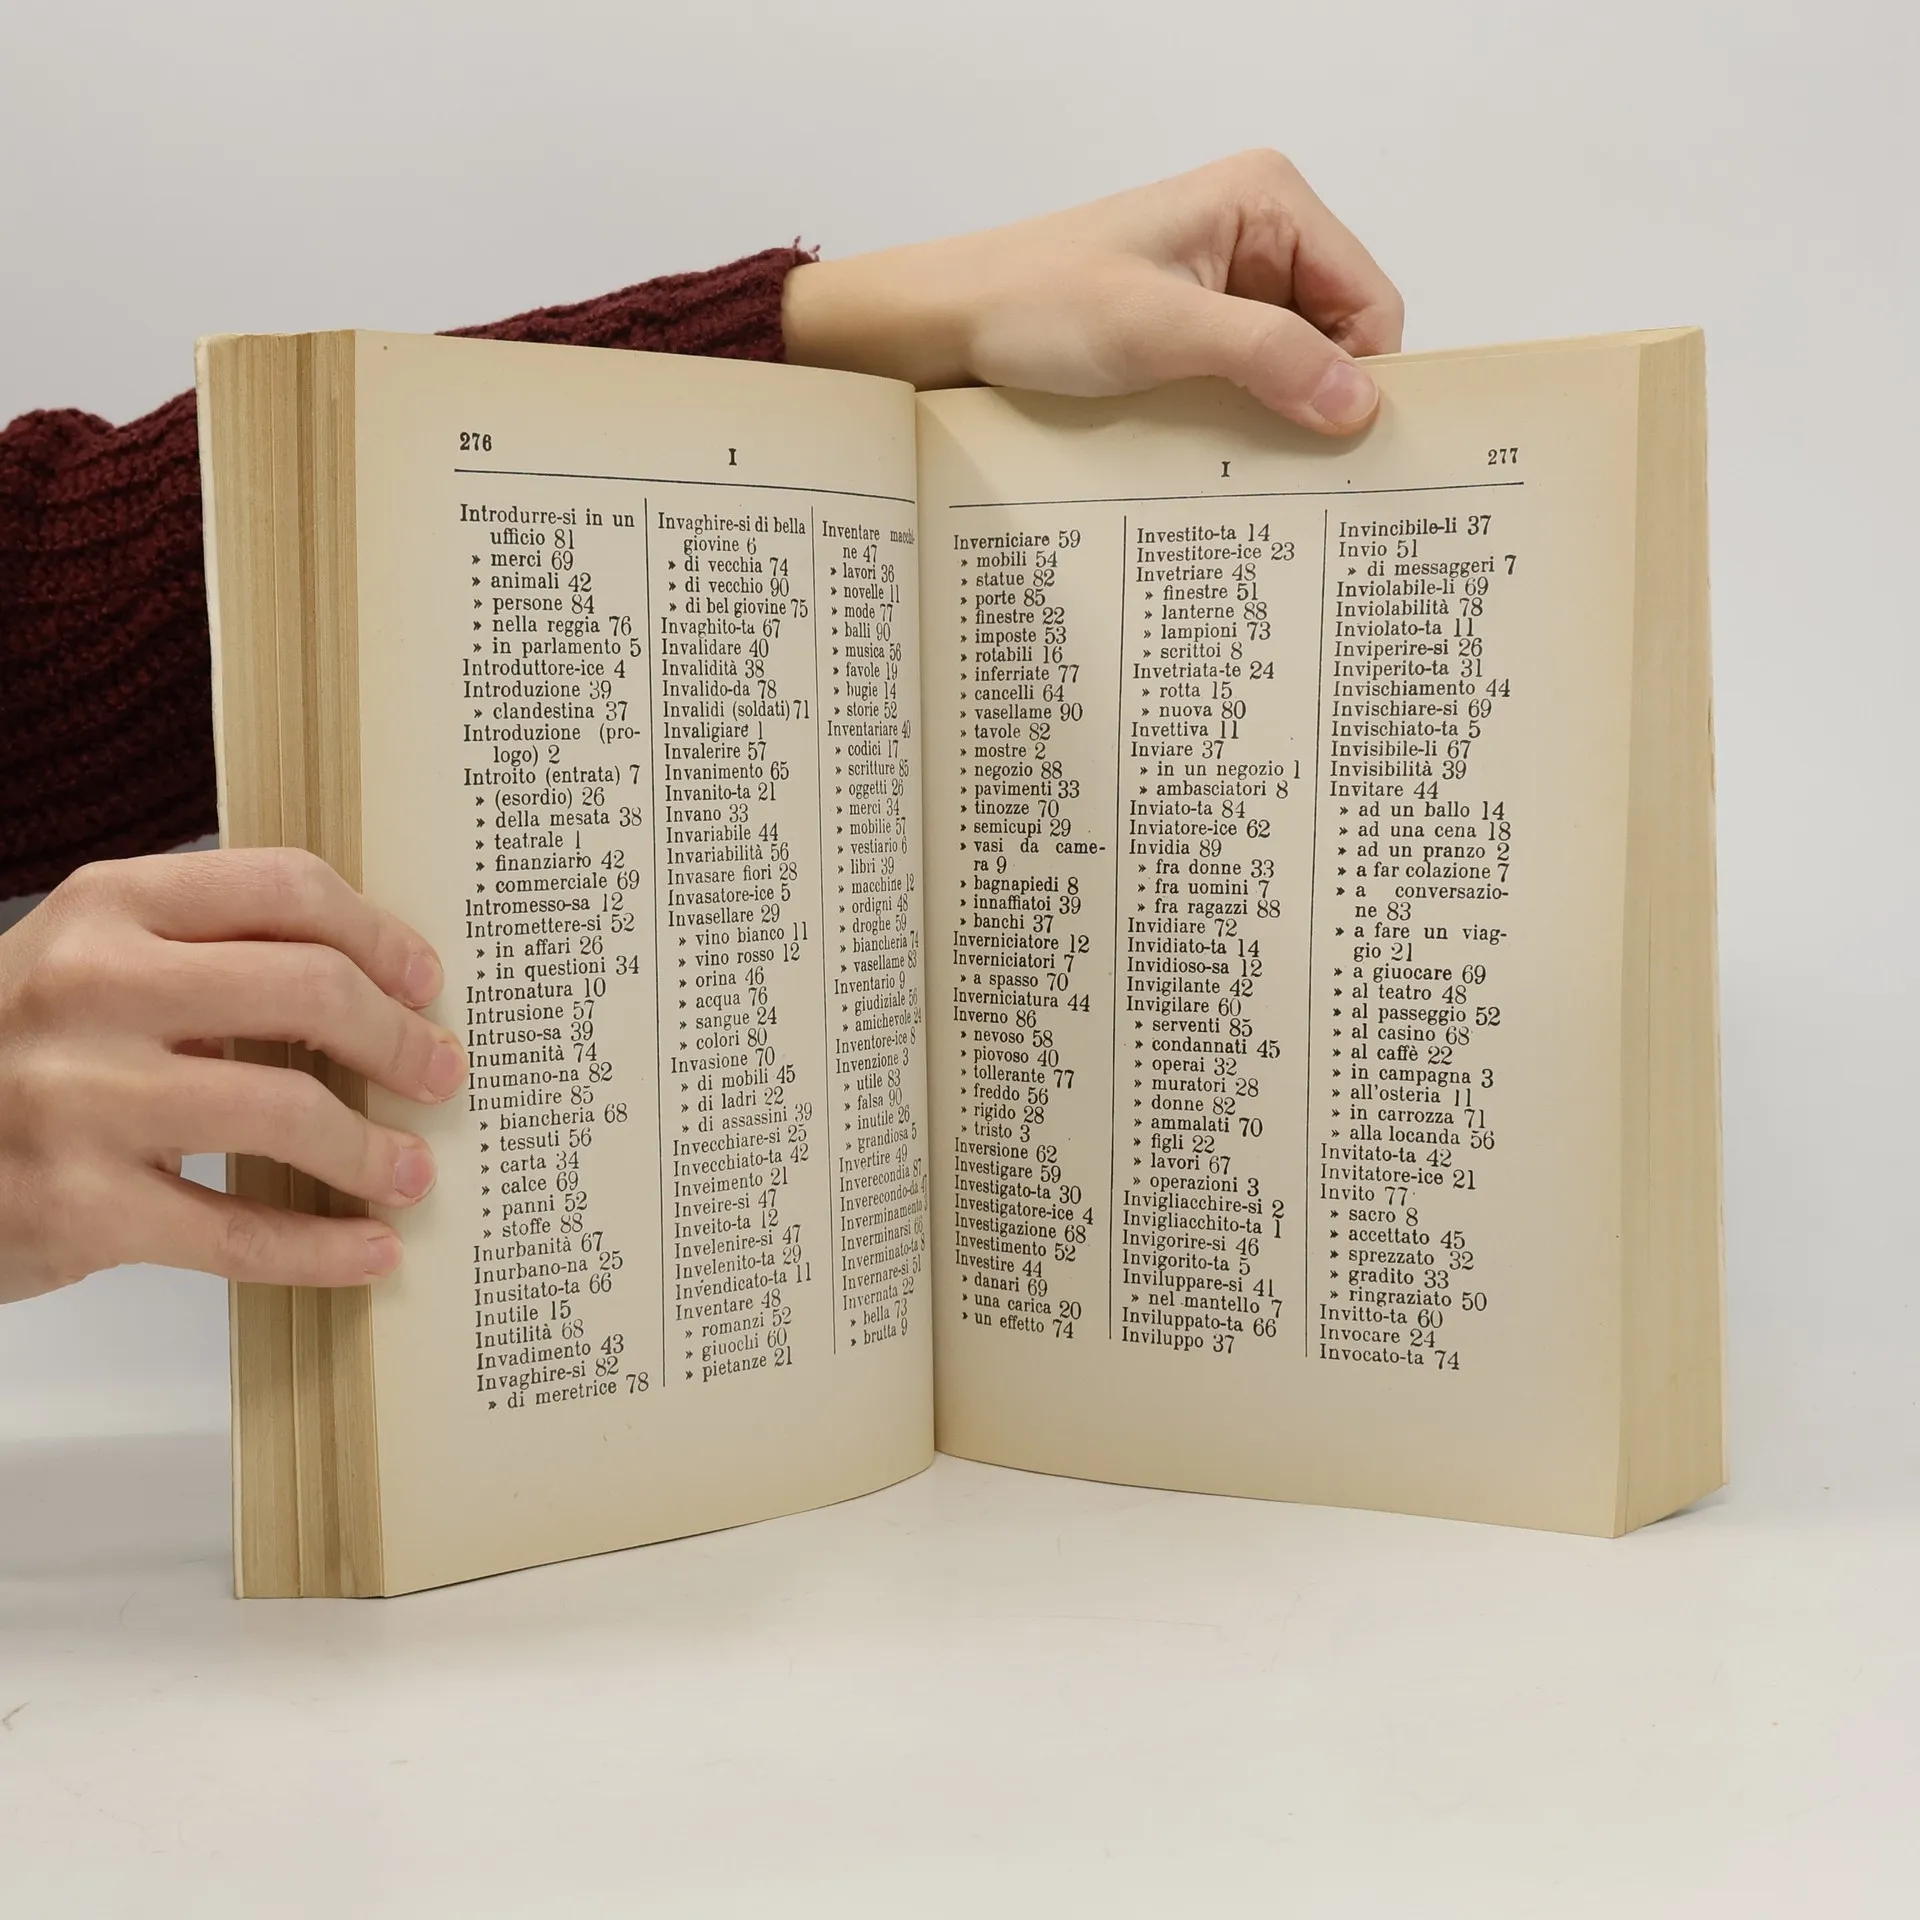 276
I
Introdurre-si in un
ufficio 81
» merci 69
» animali 42
» persone 84
» nella reggia 76
» in parlamento 5
Introduttore-ice 4
Introduzione 39
» clandestina 37
Introduzione (pro-
logo) 2
Introito (entrata) 7
» (esordio) 26
» della mesata 38
» teatrale 1
» finanziario 42
» commerciale 69
Intromesso-sa 12
Intromettere-si 52
» in affari 26
» in questioni 34
Intronatura 10
Intrusione 57
Intruso-sa 39
Inumanità 74
Inumano-na 82
Inumidire 85
» biancheria 68
» tessuti 56
» carta 34
» calce 69
» panni 52
» stoffe 88
Inurbanità 67
Inurbano-na 25
Inusitato-ta 66
Inutile 15
Inutilità 68
Invadimento 43
Invaghire-si 82
» di meretrice 78
Invaghire-si di bella
giovine 6
» di vecchia 74
» di vecchio 90
» di bel giovine 75
Invaghito-ta 67
Invalidare 40
Invalidità 38
Invalido-da 78
Invalidi (soldati) 71
Invaligiare 1
Invalerire 57
Invanimento 65
Invanito-ta 21
Invano 33
Invariabile 44
Invariabilità 56
Invasare fiori 28
Invasatore-ice 5
Invasellare 29
» vino bianco 11
» vino rosso 12
» orina 46
» acqua 76
» sangue 24
» colori 80
Invasione 70
» di mobili 45
» di ladri 22
» di assassini 39
Invecchiare-si 25
Invecchiato-ta 42
Inveimento 21
Inveire-si 47
Inveito-ta 12
Invelenire-si 47
Invelenito-ta 29
Invendicato-ta 11
Inventare 48
» romanzi 52
» giuochi 60
» pietanze 21
Inventare macchi-
ne 47
» lavori 36
» novelle 11
» mode 77
» balli 90
» musica 56
» favole 19
» bugie 14
» storie 52
Inventariare 40
» codici 17
» scritture 85
» oggetti 26
» merci 34
» mobilie 57
» vestiario 6
» libri 39
» macchine 12
» ordigni 48
» droghe 59
» biancheria 74
» vasellame 83
Inventario 9
» giudiziale 56
» amichevole 24
Inventore-ice 8
Invenzione 3
» utile 83
» falsa 90
» inutile 26
» grandiosa 5
Invertire 49
Inverecondia 87
Inverecondo-da
Inverminamento
Inverminarsi 66
Inverminato-ta 8
Invernare-si 51
Invernata 22
» bella 73
» brutta 9
277
I
Inverniciare 59
» mobili 54
» statue 82
» porte 85
» finestre 22
» imposte 53
» rotabili 16
» inferriate 77
» cancelli 64
» vasellame 90
» tavole 82
» mostre 2
» negozio 88
» pavimenti 33
» tinozze 70
» semicupi 29
» vasi da came-
ra 9
» bagnapiedi 8
» innaffiatoi 39
» banchi 37
Inverniciatore 12
Inverniciatori 7
» a spasso 70
Inverniciatura 44
Inverno 86
» nevoso 58
» piovoso 40
» tollerante 77
» freddo 56
» rigido 28
» tristo 3
Inversione 62
Investigare 59
Investigato-ta 30
Investigatore-ice 4
Investigazione 68
Investimento 52
Investire 44
» danari 69
» una carica 20
» un effetto 74
Investito-ta 14
Investitore-ice 23
Invetriare 48
» finestre 51
» lanterne 88
» lampioni 73
» scrittoi 8
Invetriata-te 24
» rotta 15
» nuova 80
Invettiva 11
Inviare 37
» in un negozio 1
» ambasciatori 8
Inviato-ta 84
Inviatore-ice 62
Invidia 89
» fra donne 33
» fra uomini 7
» fra ragazzi 88
Invidiare 72
Invidiato-ta 14
Invidioso-sa 12
Invigilante 42
Invigilare 60
» serventi 85
» condannati 45
» operai 32
» muratori 28
» donne 82
» ammalati 70
» figli 22
» lavori 67
» operazioni 3
Invigliacchire-si 2
Invigliacchito-ta 1
Invigorire-si 46
Invigorito-ta 5
Inviluppare-si 41
» nel mantello 7
Inviluppato-ta 66
Inviluppo 37
Invincibile-li 37
Invio 51
» di messaggeri 7
Inviolabile-li 69
Inviolabilità 78
Inviolato-ta 11
Inviperire-si 26
Inviperito-ta 31
Invischiamento 44
Invischiare-si 69
Invischiato-ta 5
Invisibile-li 67
Invisibilità 39
Invitare 44
» ad un ballo 14
» ad una cena 18
» ad un pranzo 2
» a far colazione 7
» a conversazio-
ne 83
» a fare un viag-
gio 21
» a giuocare 69
» al teatro 48
» al passeggio 52
» al casino 68
» al caffè 22
» in campagna 3
» all'osteria 11
» in carrozza 71
» alla locanda 56
Invitato-ta 42
Invitatore-ice 21
Invito 77
» sacro 8
» accettato 45
» sprezzato 32
» gradito 33
» ringraziato 50
Invitto-ta 60
Invocare 24
Invocato-ta 74